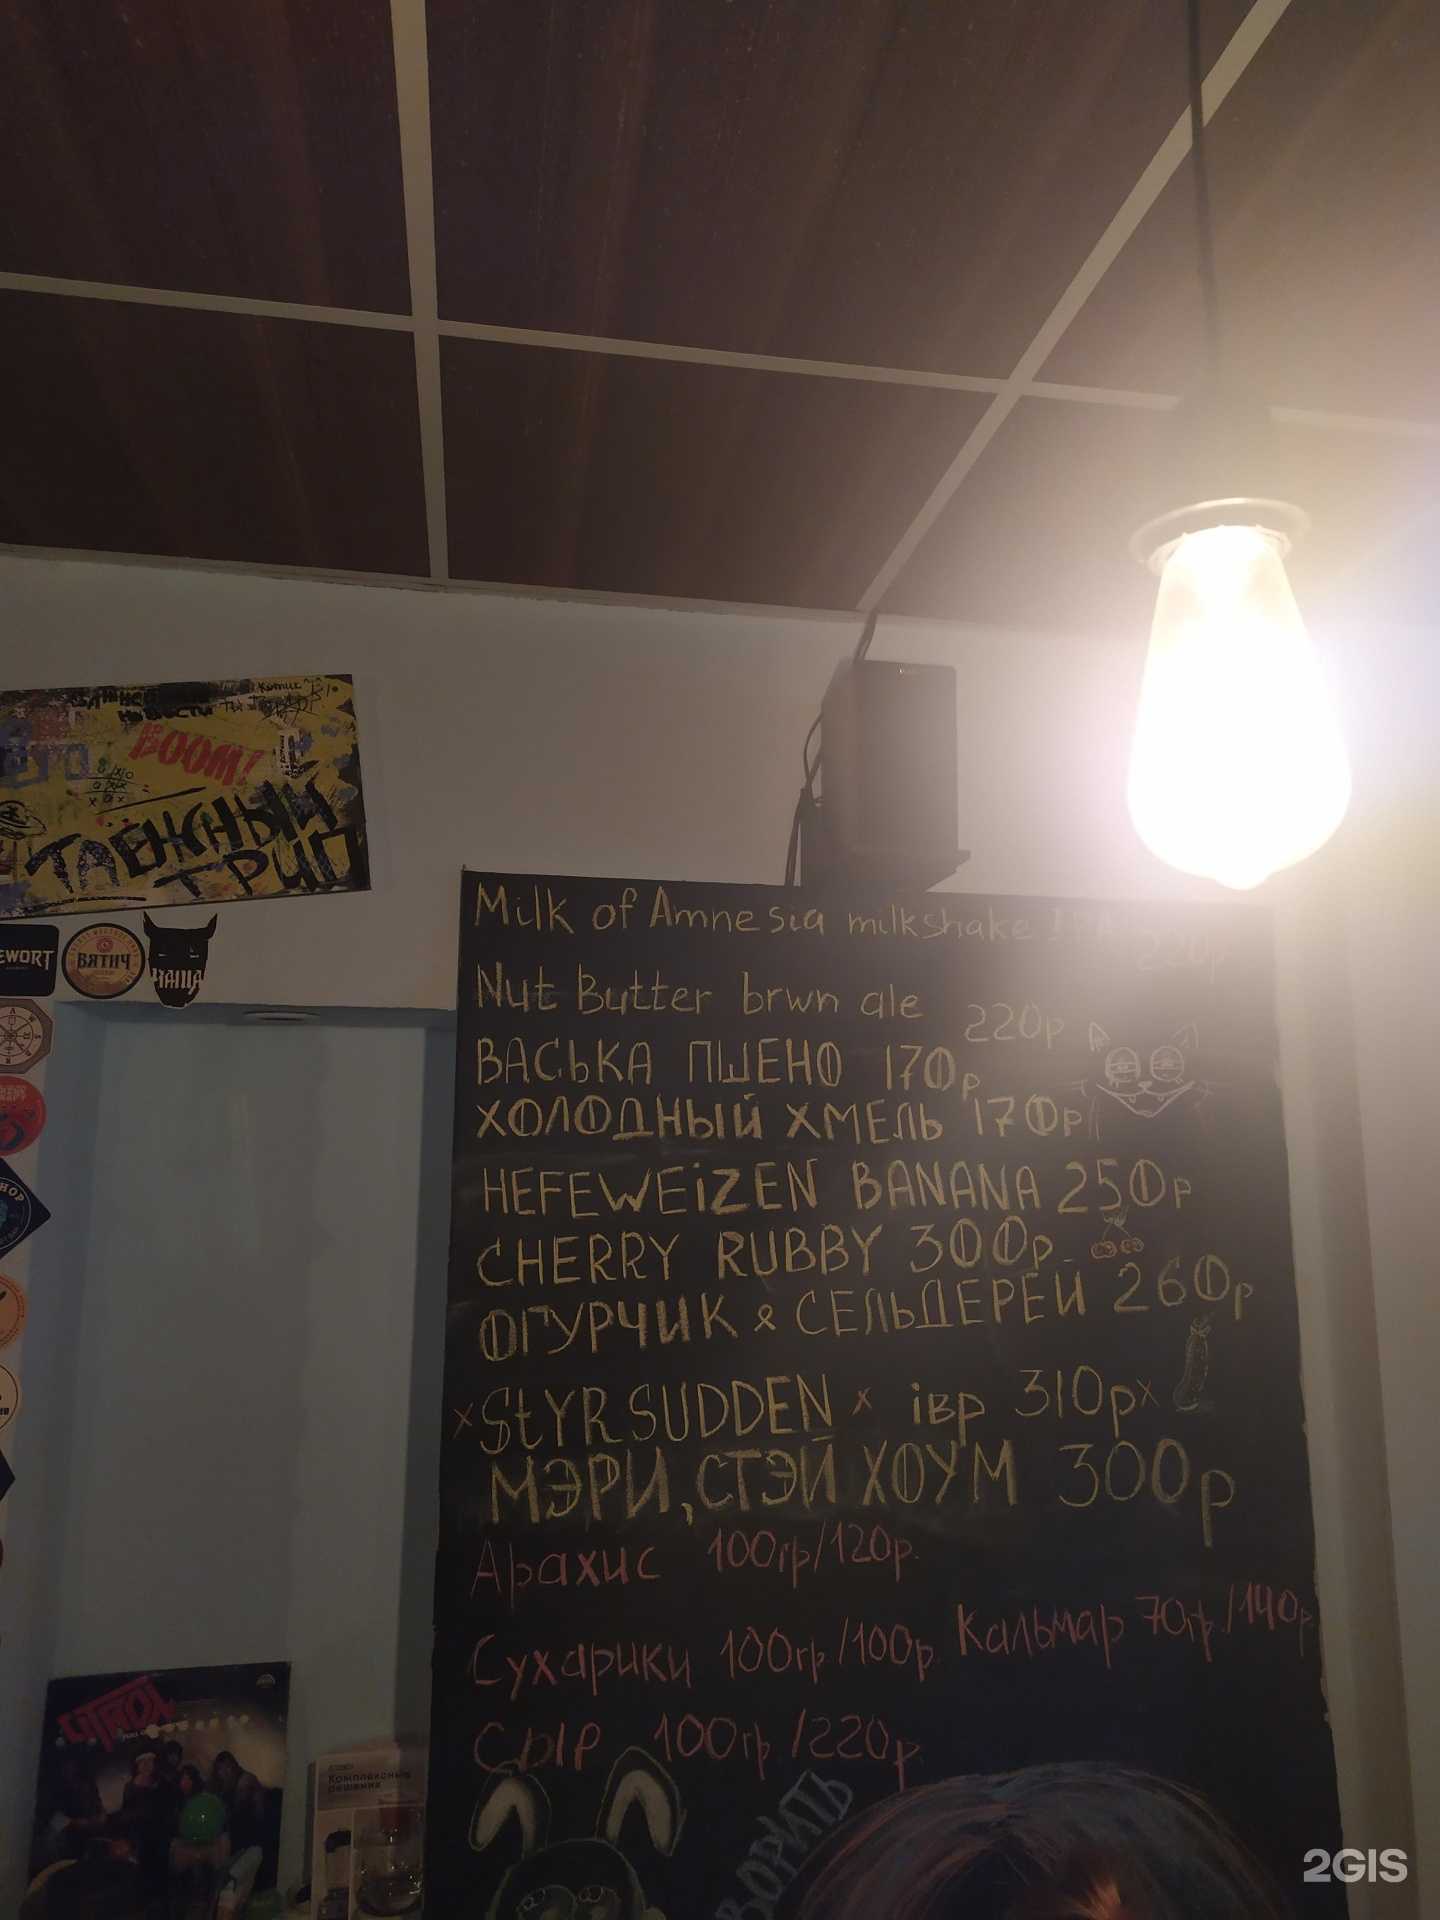 Котик
BOOM!
ТАЁЖНЫЙ
ТРИП
EWORT
ВЯТИЧ
ЧАЩА
Milk of Amnesia milkshake IPA
220р
Nut Butter brwn ale 220р
ВАСЬКА ПШЕНО 170р
ХОЛОДНЫЙ ХМЕЛЬ 170р
HEFEWEiZEN BANANA 250р
CHERRY RUBBY 300р
ОГУРЧИК & СЕЛЬДЕРЕЙ 260р
x StYR SUDDEN x івр 310р x
МЭРИ, СТЭЙ ХОУМ 300р
Арахис 100гр/120р.
Сухарики 100гр/100р. Кальмар 70гр./140р.
Сыр 100гр/220р.
CITRON
Комплексные
решения
2GIS